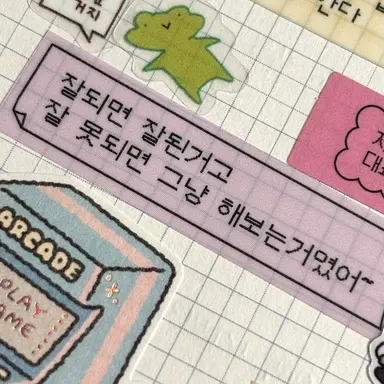 거지
한다
잘되면 잘된거고
잘 못되면 그냥 해보는거였어~
ARCADE
PLAY
GAME